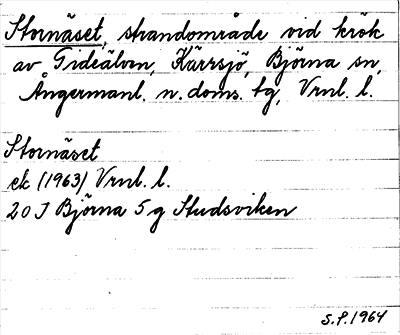 Stornäset, strandområde vid krök
av Gideälven, Kärrsjö, Björna sn,
Ångermanl. n. doms. tg, Vrnl. l.
Stornäset
ek (1963) Vrnl. l.
20 J Björna 5 g Studsviken
S.P. 1964